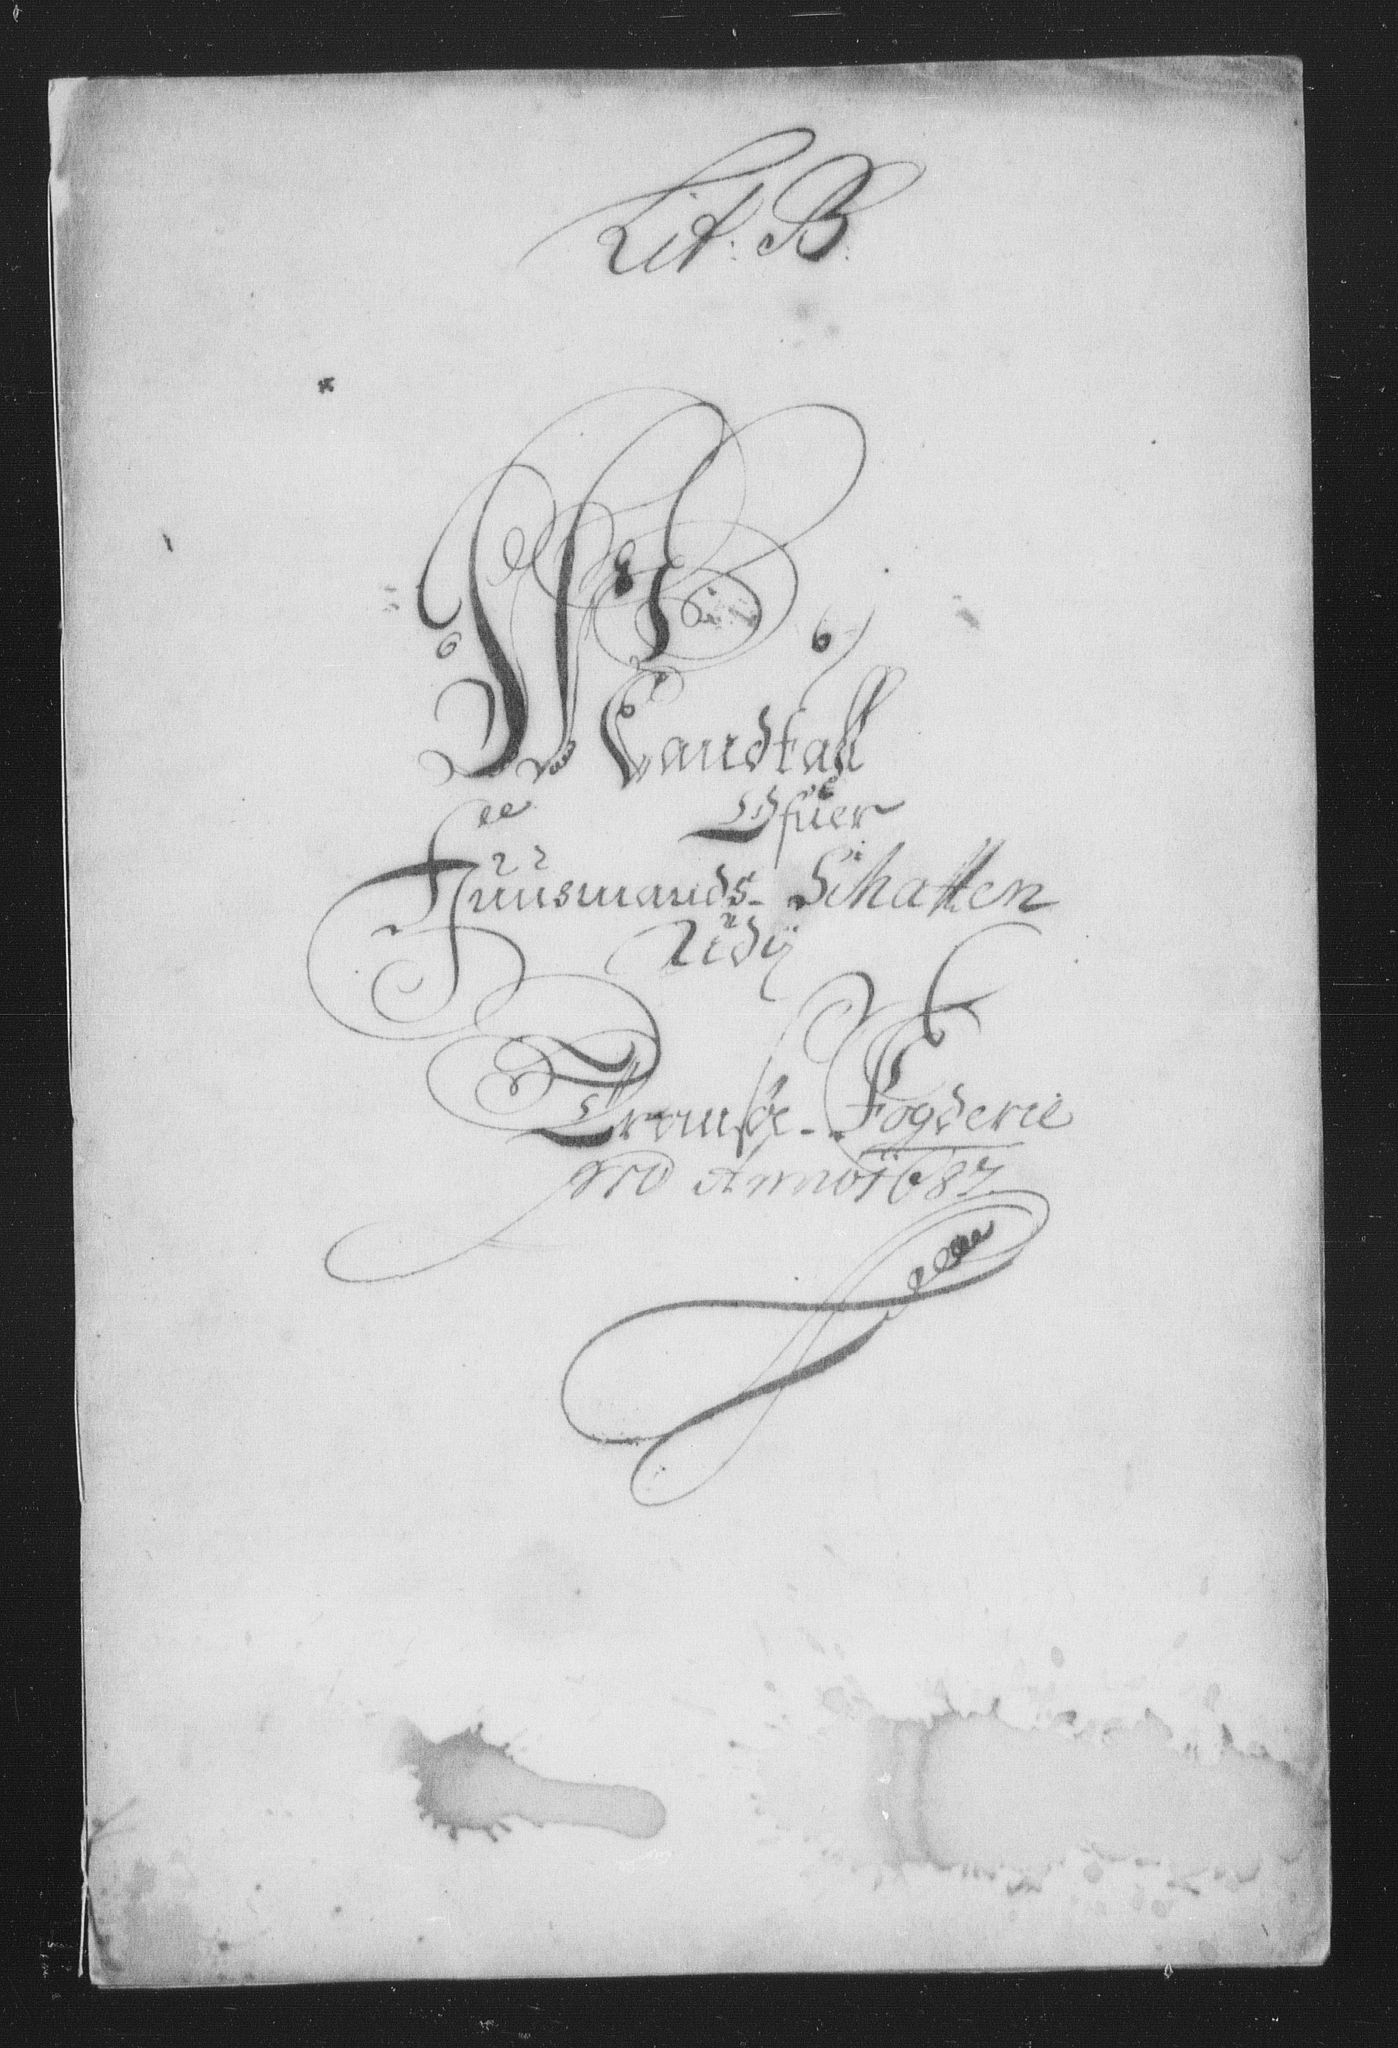 Lit: B:
Mandtall
Ofuer
Huusmands- Schatten
Udj
Tromsøe- Fogderie
pro Anno 1687